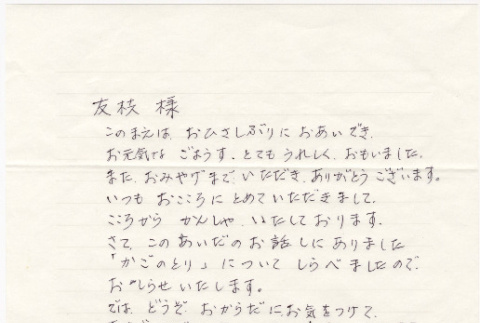 友枝 様
このまえは、おひさしぶりに おあいでき、
お元気な ごようす、とても うれしく、おもいました。
また、おみやげまで、いただき、ありがとう ございます。
いつも おこころに とめていただきまして、
こころから かんしゃ、いたして おります。
さて、このあいだの お話しに ありました
「かごのとり」に ついて しらべ ましたので、
お知らせ いたします。
では、どうぞ、おからだに、お気をつけて、